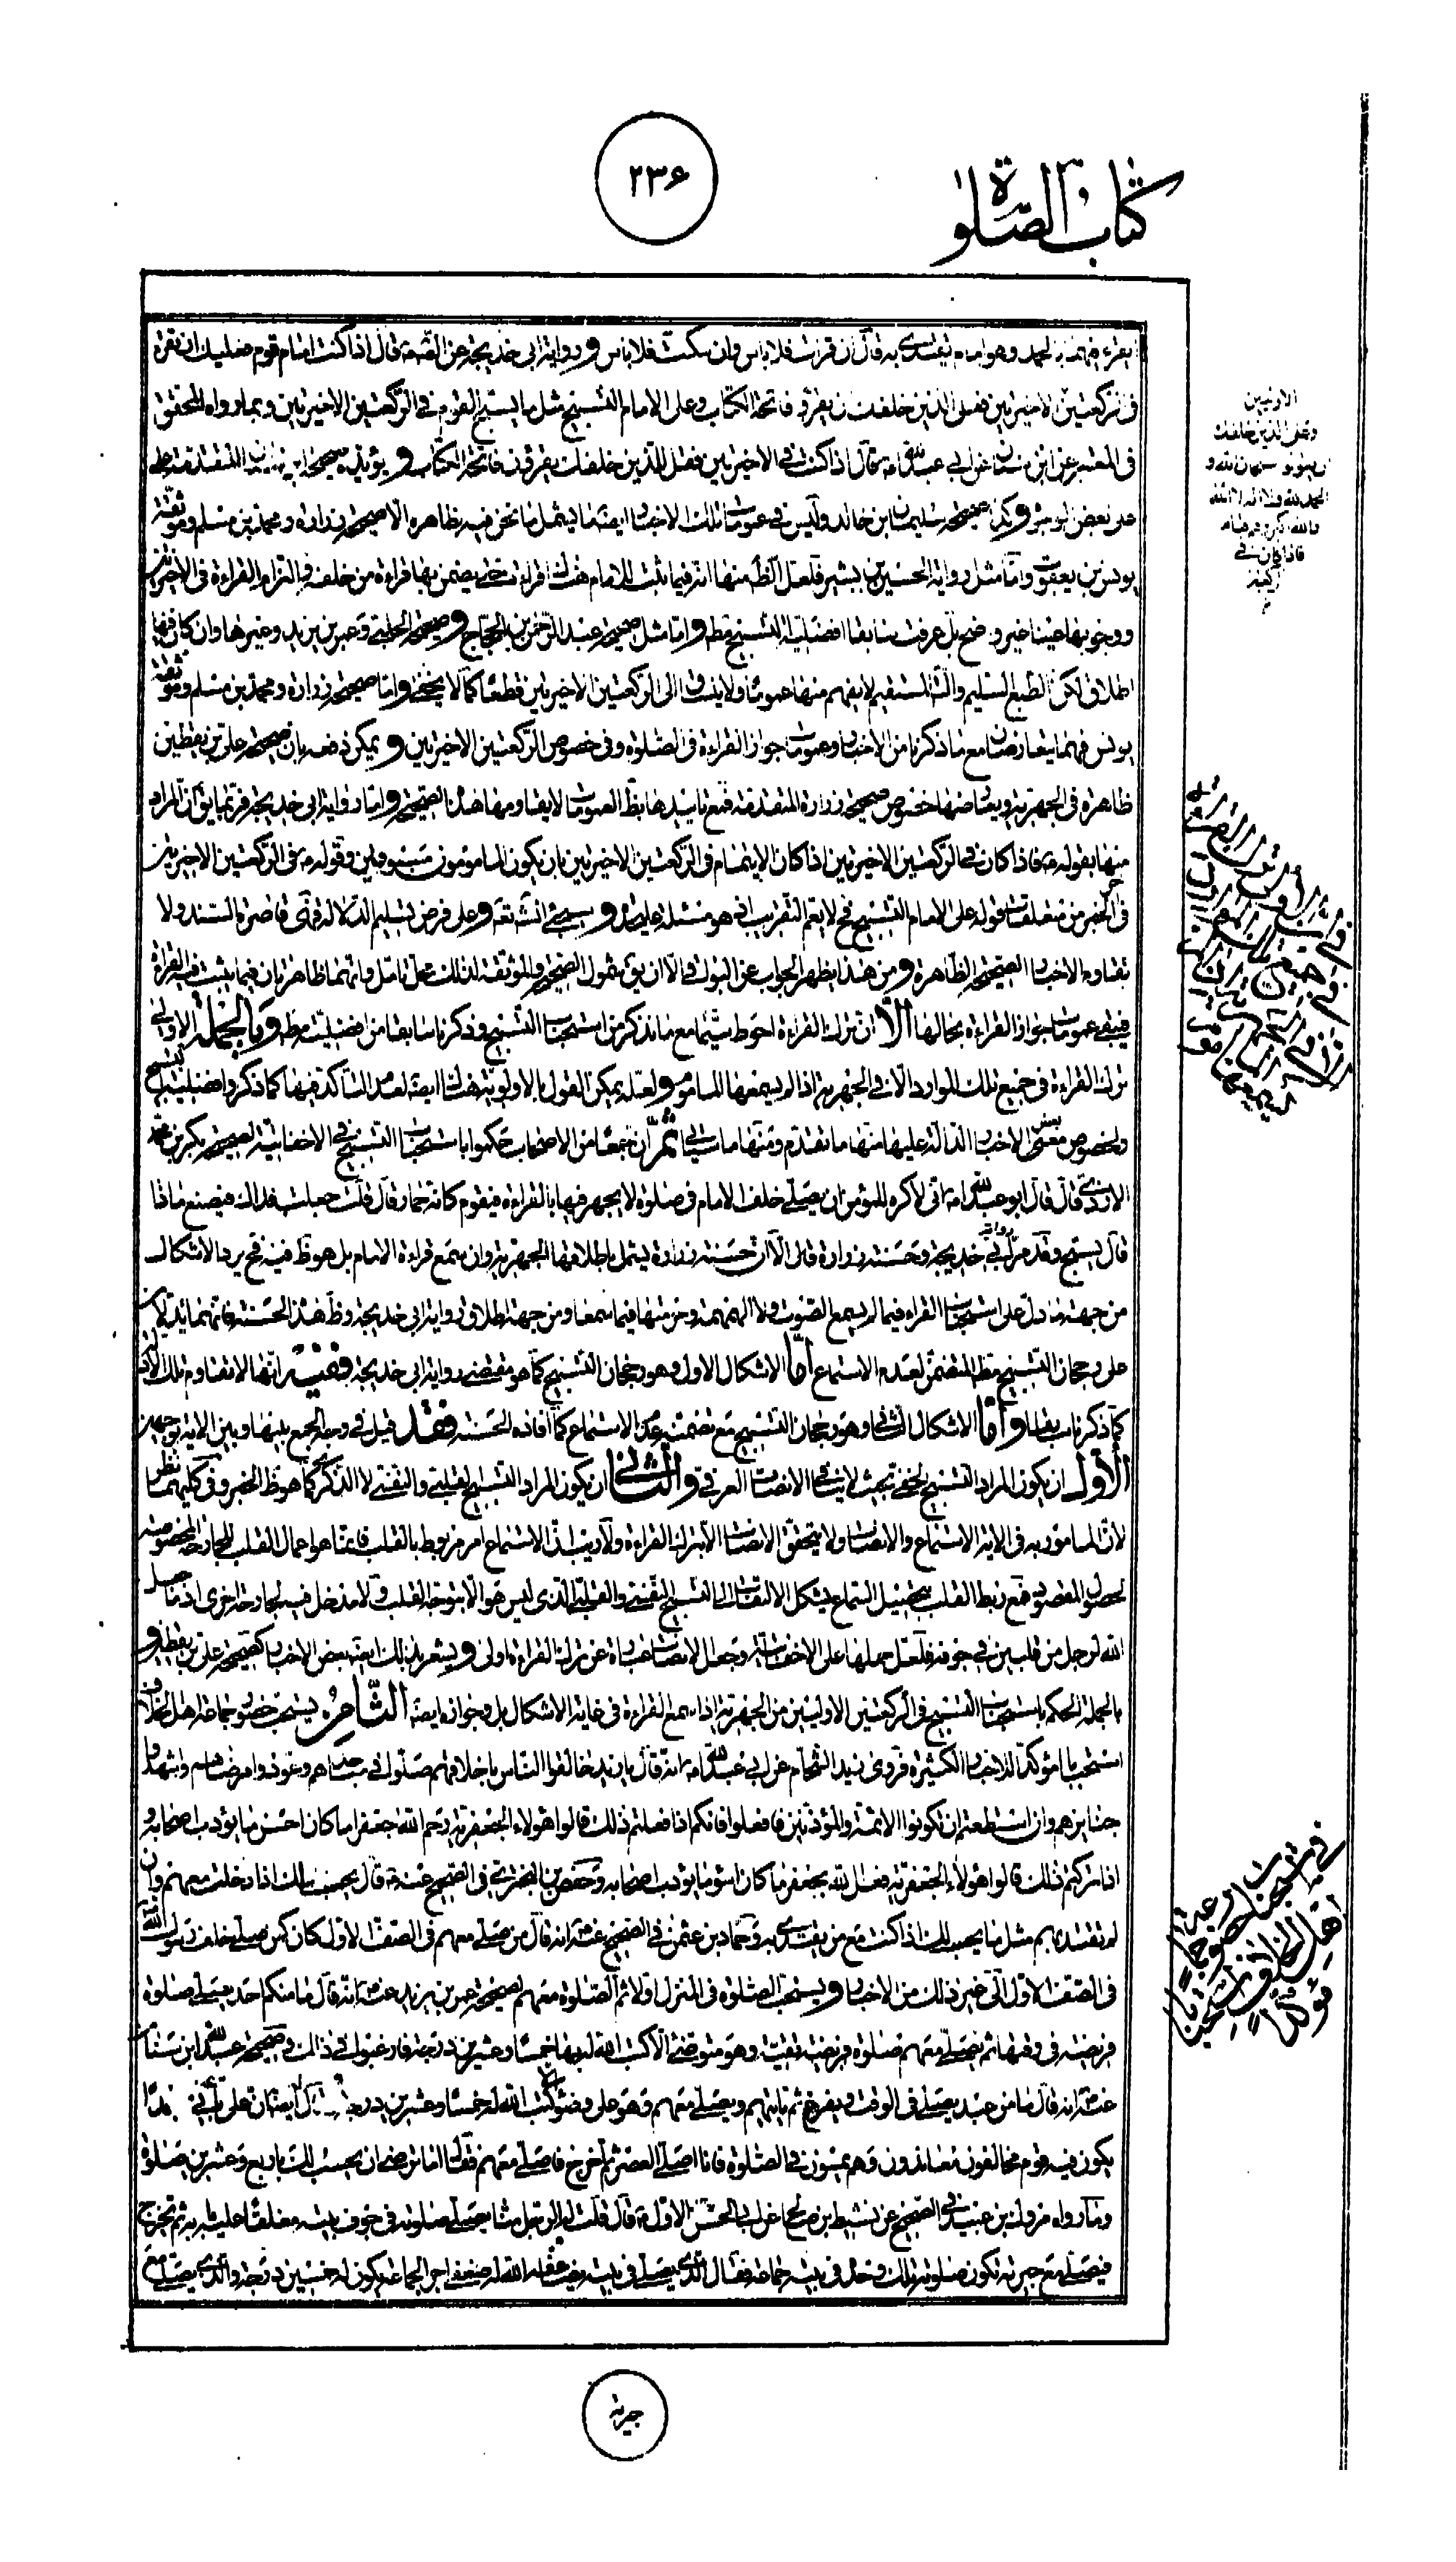 كتاب الصلوة
٢٣۶
يقرء فيهما بالحمد وهو امام يقتدى به قال ان قرات فلا باس وان سكت فلا باس و رواية ابى خديجة عن الصّ قال اذا كنت امام قوم فعليك ان تقرء
فى الركعتين الاخيرتين فعلى الذين خلفك ان يقرؤا فاتحة الكتاب وعلى الامام التسبيح مثل ما يسبح القوم فى الركعتين الاخيرتين وبما رواه المحقق
فى المعتبر عن ابن سنان عن ابى عبد الله قال اذا كنت فى الاخيرتين فقل للذين خلفك يقرؤن فاتحة الكتاب و يؤيده صحيحة ابن سنان المتقدمة
على بعض الوجوه و كذا صحيحة سليمان بن خالد وليس فى عمومات تلك الاخبار ايضا ما يشمل ما نحن فيه بظاهره الا صحيحة زرارة ومحمد بن مسلم وموثقة
يونس بن يعقوب واما مثل رواية الحسين بن بشير فلعل الظ منها انه فيما ثبت للامام هناك قراءة حتى يضمن بها قراءة من خلفه والتزام القراءة فى الاخيرتين
ووجوبها عينا غير واضح بل عرفت سابقا افضلية التسبيح مط و اما مثل صحيحة عبد الرحمن بن الحجاج و صحيحة الحلبى وعمر بن يزيد وغيرها وان كان فيها
اطلاق لكن الطبع السليم والذهن المستقيم لا يفهم منها عموما ولا ينساق الى الركعتين الاخيرتين قطعا كما لا يخفى و اما صحيحة زرارة ومحمد بن مسلم وموثقة
يونس فهما يتعارضان مع ما ذكرنا من الاخبار وعمومات جواز القراءة فى الصلوة وفى خصوص الركعتين الاخيرتين و يمكن دفعه بان صحيحة على بن يقطين
ظاهرة فى الجهرية ويعارضها خصوص صحيحة زرارة المتقدمة فمع تاييدها بتلك العمومات لا يقاومها هذه الصحيحة و اما رواية ابى خديجة فربما يق ان المراد
منها بقوله فاذا كان فى الركعتين الاخيرتين اذا كان الايتمام فى الركعتين الاخيرتين بان يكون المامومون مسبوقين وقوله فى الركعتين الاخيرتين
فى اخر الخبر من متعلقات قوله على الامام التسبيح فح لا يتم التقريب اذ هو مسئلة عليحدة و سيجئ انش تعه و على فرض تسليم الدلالة فهى قاصرة السند ولا
تقاوم الاخبار الصحيحة الظاهرة و من هذا يظهر الجواب عن البواقى الا ان يق شمول الصحيحة والموثقة لذلك محل تامل وانهما ظاهرتان فيما يثبت فيه القراءة
فيبقى عمومات جواز القراءة بحالها الا ان ترك القراءة احوط سيما مع ما نذكر من استحباب التسبيح وذكرنا سابقا من افضليته مط و بالجملة الاولى
ترك القراءة فى جميع تلك الموارد الا فى الجهرية اذا لم يسمعها الماموم ولعله يمكن القول بالاولوية هناك ايضا لعدم التاكد فيها كما ذكروا افضلية التسبيح
ولخصوص بعض الاخبار الدالة عليها منها ما تقدم ومنها ما سياتى ثم ان جمعا من الاصحاب حكموا باستحباب التسبيح فى الاخفاتية لصحيحة بكر بن محمد
الازدى قال قال ابو عبد الله انى لاكره للمؤمن ان يصلى خلف الامام فى صلوة لا يجهر فيها بالقراءة فيقوم كانه حمار قال قلت جعلت فداك فيصنع ماذا
قال يسبح و قد مر رواية ابى خديجة وحسنة زرارة قالى الا ان حسنة زرارة يشمل باطلاقها الجهرية وان سمع قراءة الامام بل هو ظ فيه فح يرد الاشكال
من جهة ما دل على استحباب القراءة فيما لم يسمع الصوت ولا الهمهمة وحرمتها فيما سمعها ومن جهة اطلاق رواية ابى خديجة وظ هذه الحسنة فانهما يدلان
على رجحان التسبيح مط المتضمن لعدم الاستماع اما الاشكال الاول وهو رجحان التسبيح كما هو مقتضى رواية ابى خديجة ففيه انها لا تقاوم تلك الادلة
كما ذكرنا سابقا و اما الاشكال الثانى وهو رجحان التسبيح مع تضمنه عدم الاستماع كما افاده الحسنة فقد قيل فى وجه الجمع بينها وبين الاية وجهين
الاول ان يكون المراد التسبيح الخفى بحيث لا ينافى الانصات العرفى و الثانى ان يكون المراد التسبيح القلبى والنفسى لا الذكرى كما هو ظ الخبر وفى كليهما نظر
لان المامور به فى الاية الاستماع والانصات ولا يتحقق الانصات الا بترك القراءة ولا ريب ان الاستماع امر مربوط بالقلب فانما هو اعمال القلب للجارحة المخصوصة
لحصول المقصود فمع ربط القلب بتحصيل السماع يشكل الالتفات الى التسبيح النفسى والقلبى الذى ليس هو الا بتوجه القلب ولا مدخل فيه لجارحة اخرى اذ ما جعل
الله لرجل من قلبين فى جوفه فلعل حملها على الاخفاتية وجعل الانصات عبارة عن ترك القراءة اولى و يشعر بذلك ايضا بعض الاخبار كصحيحة على بن يقطين و
بالجملة الحكم باستحباب التسبيح فى الركعتين الاوليين من الجهرية اذا سمع القراءة فى غاية الاشكال بل وجوازه ايضا الثامن يستحب حضور جماعة اهل الخلاف
استحبابا مؤكدا للاخبار الكثيرة فروى زيد الشحام عن ابى عبد الله انه قال يا زيد خالقوا الناس باخلاقهم صلوا فى مساجدهم وعودوا مرضاهم واشهدوا
جنايزهم وان استطعتم ان تكونوا الائمة والمؤذنين فافعلوا فانكم اذا فعلتم ذلك قالوا هؤلاء الجعفرية رحم الله جعفرا ما كان احسن ما يؤدب اصحابه و
اذا تركتم ذلك قالوا هؤلاء الجعفرية فعل الله بجعفر ما كان اسوء ما يؤدب اصحابه و حفص بن البخترى فى الصحيح عنه قال يحسب لك اذا دخلت معهم وان
لم تقتد بهم مثل ما يحسب لك اذا كنت مع من يقتدى به و حماد بن عثمن فى الصحيح عنه انه قال من صلى معهم فى الصف الاول كان كمن صلى خلف رسول الله
فى الصف الاول الى غير ذلك من الاخبار و يستحب الصلوة فى المنزل اولا ثم الصلوة معهم لصحيحة عمر بن يزيد عنه انه قال ما منكم احد يصلى صلوة
فريضة فى وقتها ثم يصلى معهم صلوة فريضة تقية وهو متوضئ الا كتب الله له بها خمسا وعشرين درجة فارغبوا فى ذلك و صحيحة عبد الله ابن سنان
عنه انه قال ما من عبد يصلى فى الوقت ويفرغ ثم ياتيهم ويصلى معهم وهو على وضوء الا كتب الله له خمسا وعشرين درجة و قال ايضا ان على بابى مسجدا
يكون فيه قوم مخالفون معاندون وهم يمسون فى الصلوة فانا اصلى العصر ثم اخرج فاصلى معهم فقال اما ترضى ان يحسب لك باربع وعشرين صلوة
وما رواه مروك بن عبيد فى الصحيح عن نشيط بن صالح عن ابى الحسن الاول قال قلت له الرجل منا يصلى صلوته فى جوف بيته مغلقا عليه بابه ثم يخرج
فيصلى مع جيرته تكون صلوته تلك وحده فى بيته جماعة فقال الذى يصلى فى بيته يضاعفه الله له ضعفى اجر الجماعة يكون له خمسين درجة والذى يصلى مع
جيرته
الاوليين
وعلى الذين خلفك
ان يقولوا سبحان الله و
الحمد لله ولا اله الا الله
والله اكبر وهم قيام
فاذا كان فى
الركعتين
فى استحباب حضور جماعة
اهل الخلاف استحبابا
مؤكدا